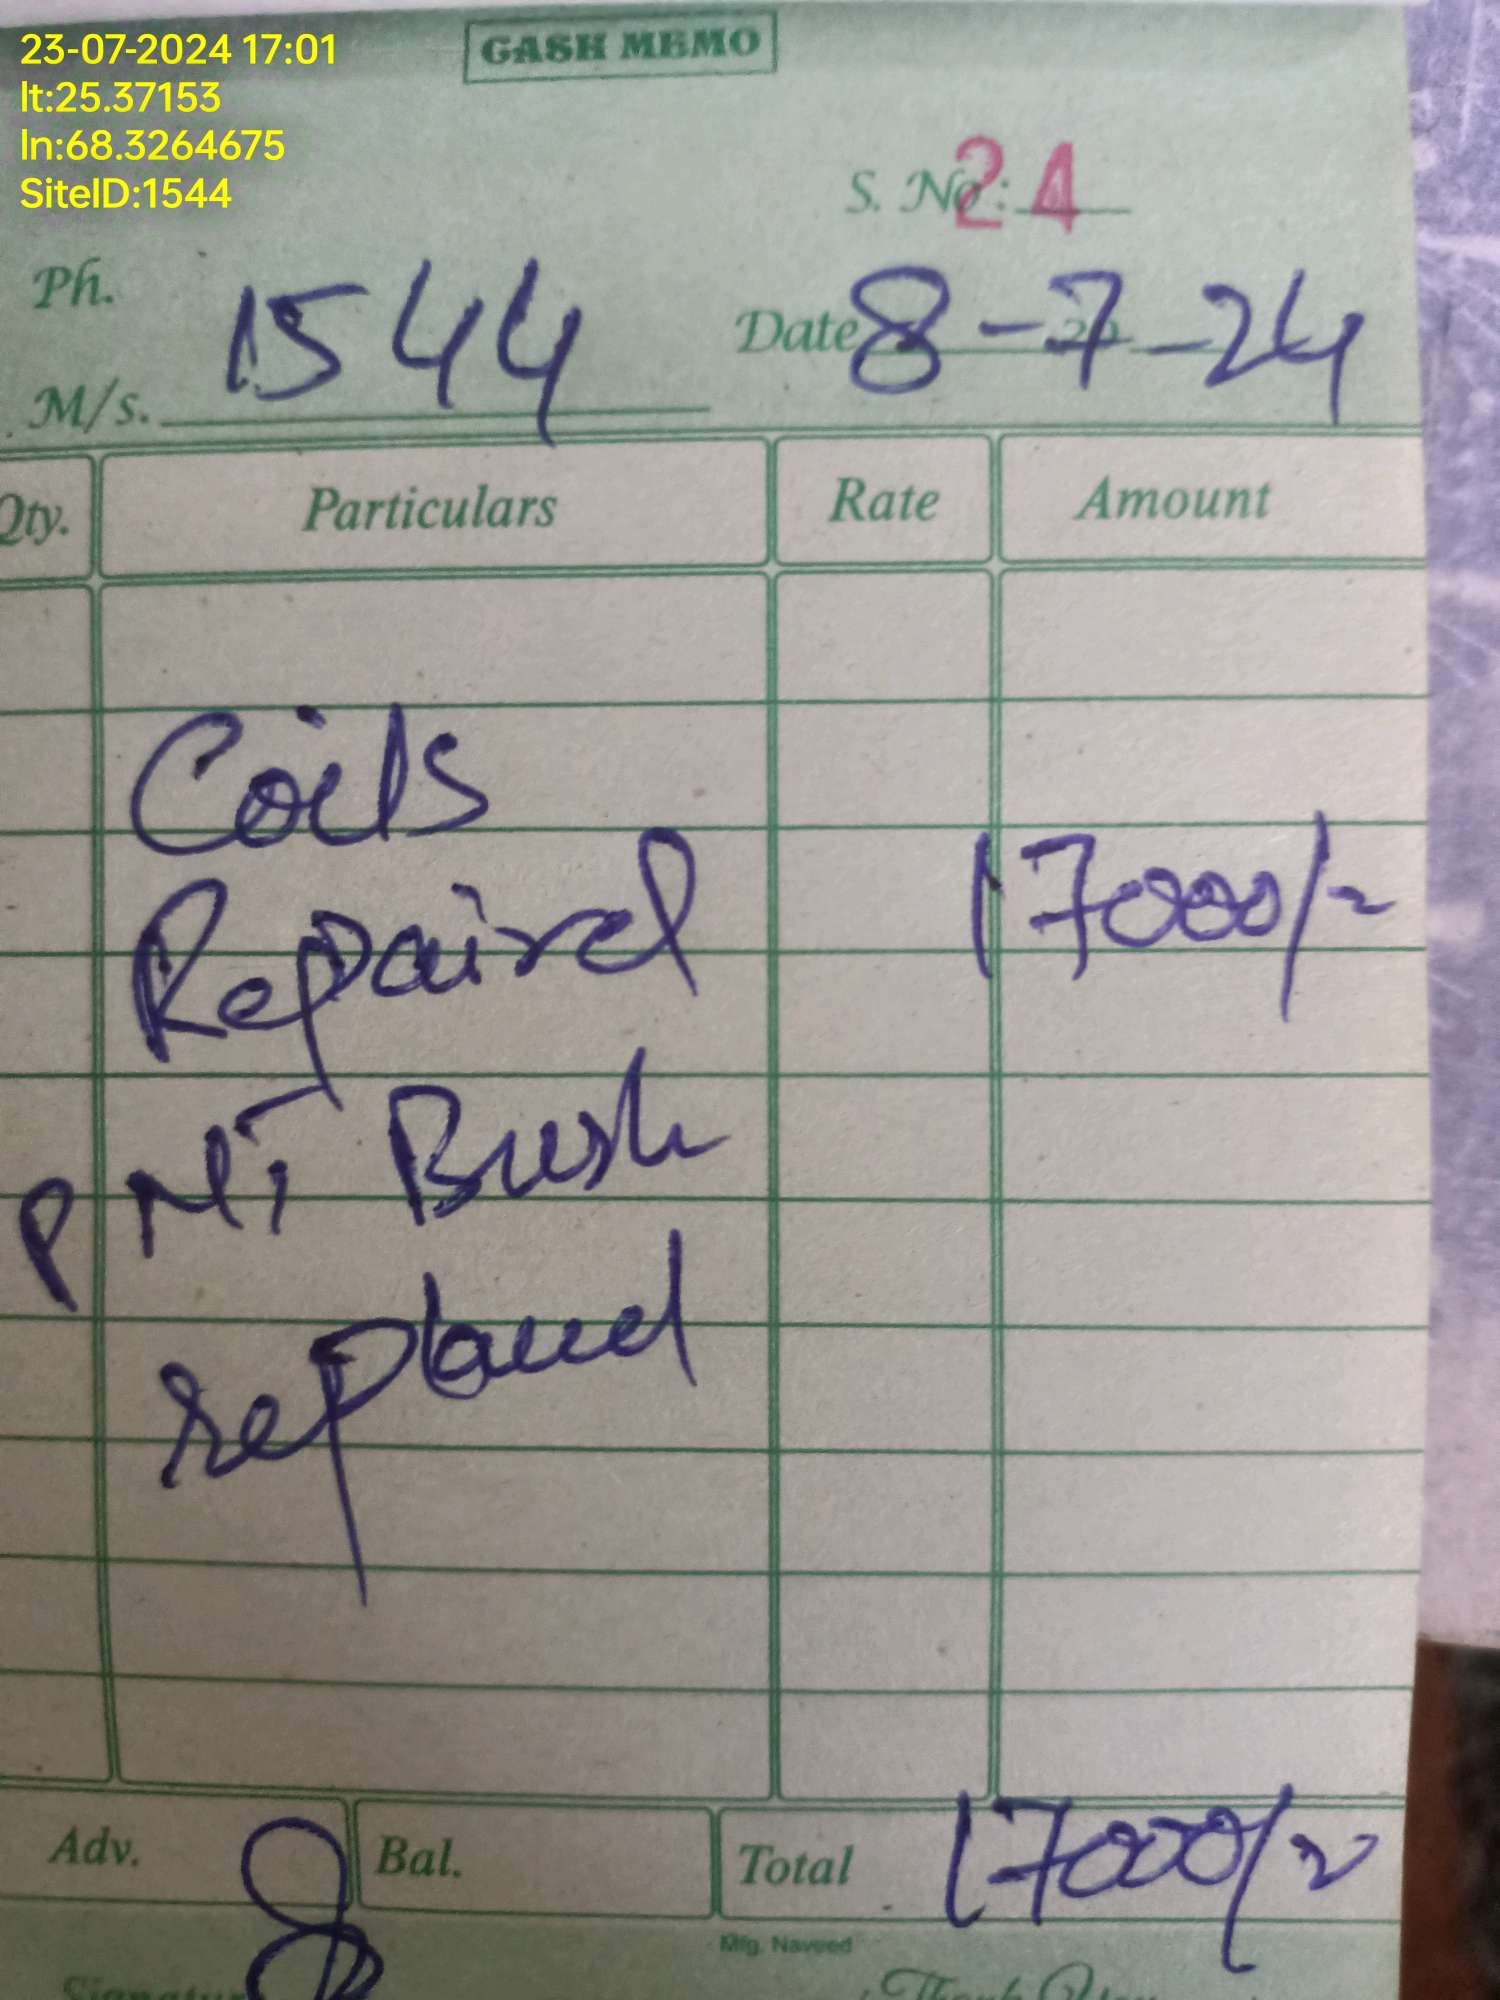 23-07-2024 17:01
lt:25.37153
ln:68.3264675
SiteID:1544
CASH MEMO
S. No: 24
Ph.
M/s. 1544
Date 8-7-24
Qty. Particulars Rate Amount
Coils
Repaired 17000/-
PMT Bush
replaced
Adv. Bal. Total 17000/-
Mfg. Naveed
Signature Thank You